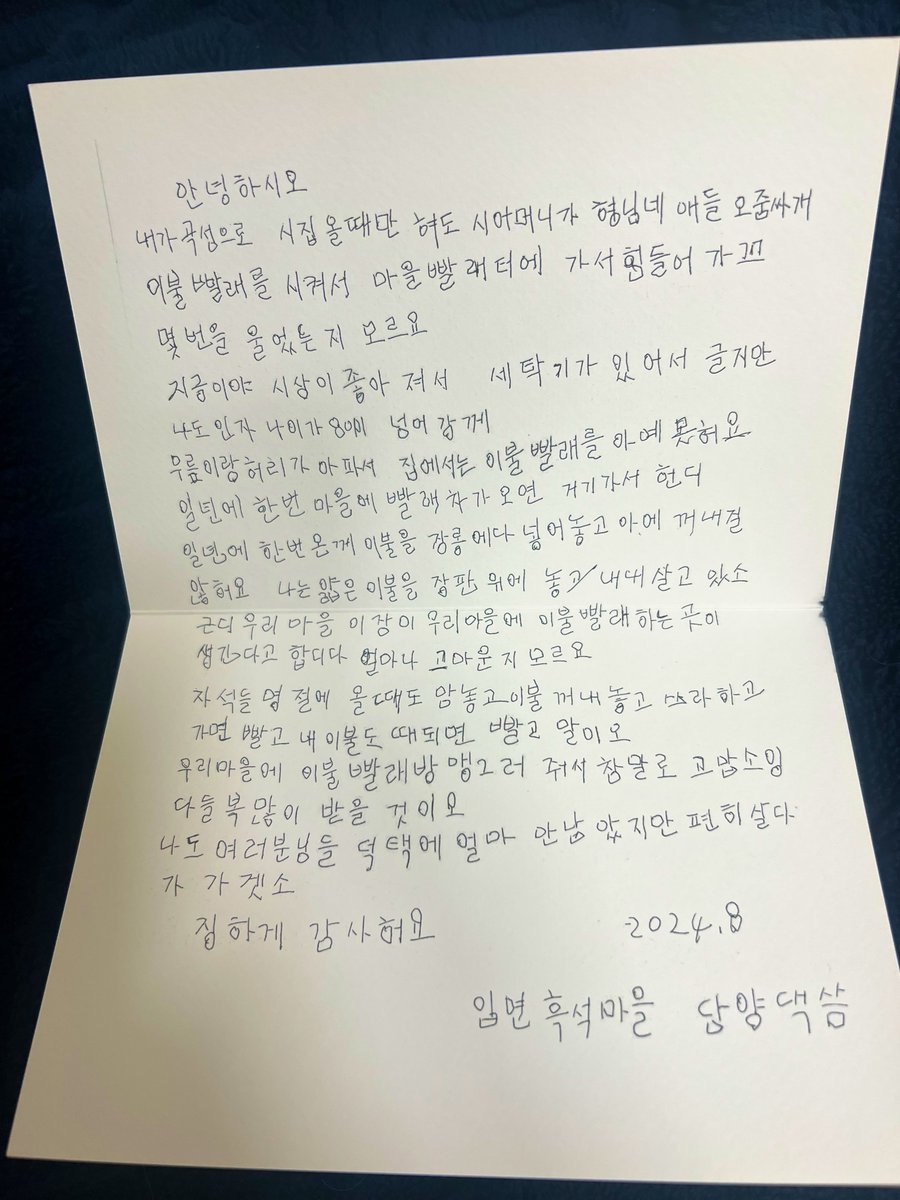 안녕하시오
내가곡성으로 시집올때만 혀도 시어머니가 형님네 애들 오줌싸개
이불빨래를 시켜서 마을빨래터에 가서힘들어 가꼬
몇번을 울었는지 모르요
지금이야 시상이 좋아져서 세탁기가 있어서 글지만
나도인자 나이가80이 넘어감께
무릎이랑허리가 아파서 집에서는 이불빨래를 아예 못혀요
일년에 한번 마을에 빨래차가오면 거기가서 헌디
일년에 한번온께 이불을 장롱에다 넣어놓고 아에 꺼내질
않혀요 나는 얇은이불을 장판위에 놓고 내내살고 있소
근디우리마을 이장이 우리마을에 이불빨래하는곳이
생긴다고 합디다 얼마나 고마운지 모르요
자석들 명절에 올때도 암놓고이불 꺼내놓고 쓰라하고
가면 빨고 내이불도 때되면 빨고 말이오
우리마을에 이불빨래방 맹그러 줘서 참말로 고맙소잉
다들복많이 받을 것이오
나도 여러분님들 덕택에 얼마 안남았지만 편히살다
가 가겟소
집하게 감사혀요 2024.8
입면흑석마을 담양댁씀